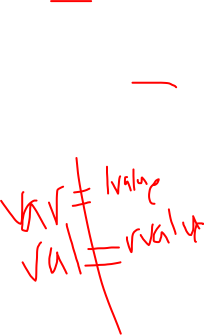 var = lvalue
val = rvalue